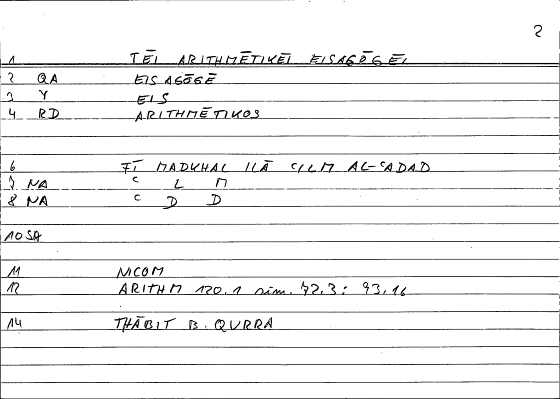 2
1 TĒI ARITHMĒTIKĒI EISAGŌGĒI
2 QA EISAGŌGĒ
3 Y EIS
4 RD ARITHMĒTIKOS
6 FĪ MADKHAL ILĀ ʿILM AL-ʿADAD
7 NA ʿ L M
8 NA ʿ D D
10 SA
11 NICOM
12 ARITHM 120.1 sim. 72.3; 93.16
14 THĀBIT B. QURRA